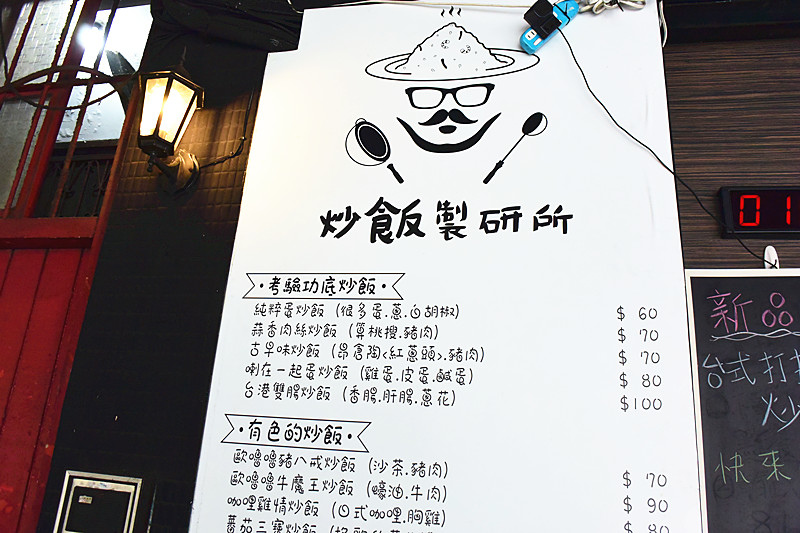 炒飯製研所
考驗功底炒飯
純粹蛋炒飯 (很多蛋.蔥.白胡椒) $ 60
蒜香肉絲炒飯 (算桃搜.豬肉) $ 70
古早味炒飯 (昂倉陶<紅蔥頭>.豬肉) $ 70
喇在一起蛋炒飯 (雞蛋.皮蛋.鹹蛋) $ 80
台港雙腸炒飯 (香腸.肝腸.蔥花) $100
有色的炒飯
歐嚕嚕豬八戒炒飯 (沙茶.豬肉) $ 70
歐嚕嚕牛魔王炒飯 (蠔油.牛肉) $ 90
咖哩雞情炒飯 (日式咖哩.胸雞) $ 80
蕃茄三寶炒飯
01
新品
台式打
炒
快來